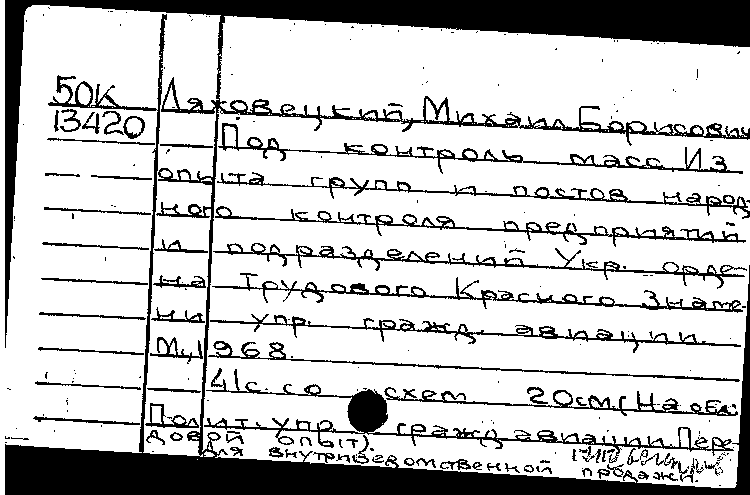 50К Ляховецкий, Михаил Борисович
13420 Под контроль масс. Из
опыта групп и постов народ-
ного контроля предприятий
и подразделений Укр. орде-
на Трудового Красного Знаме
ни упр. гражд. авиации.
М., 1968.
41с. со схем 20см. (На обл:
Полит. упр. гражд авиации. Пере-
довой опыт).
Для внутриведомственной продажи.